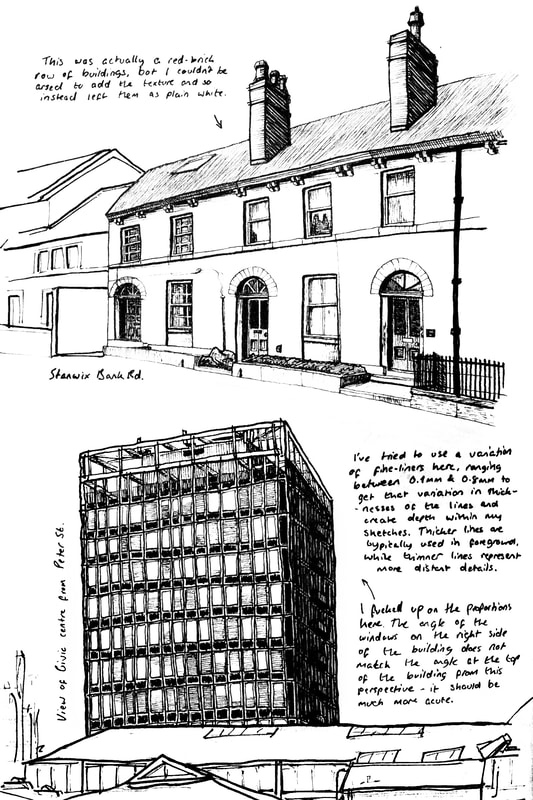 This was actually a red-brick
row of buildings, but I couldn't be
arsed to add the texture and so
instead left them as plain white.
Stanwix Bank Rd.
I've tried to use a variation
of fine-liners here, ranging
between 0.1mm & 0.8mm to
get that variation in thick-
-nesses of the lines and
create depth within my
sketches. Thicker lines are
typically used in foreground,
while thinner lines represent
more distant details.
View of Civic centre from Peter St.
I fucked up on the proportions
here. The angle of the
windows on the right side
of the building does not
match the angle at the top
of the building from this
perspective - it should be
much more acute.